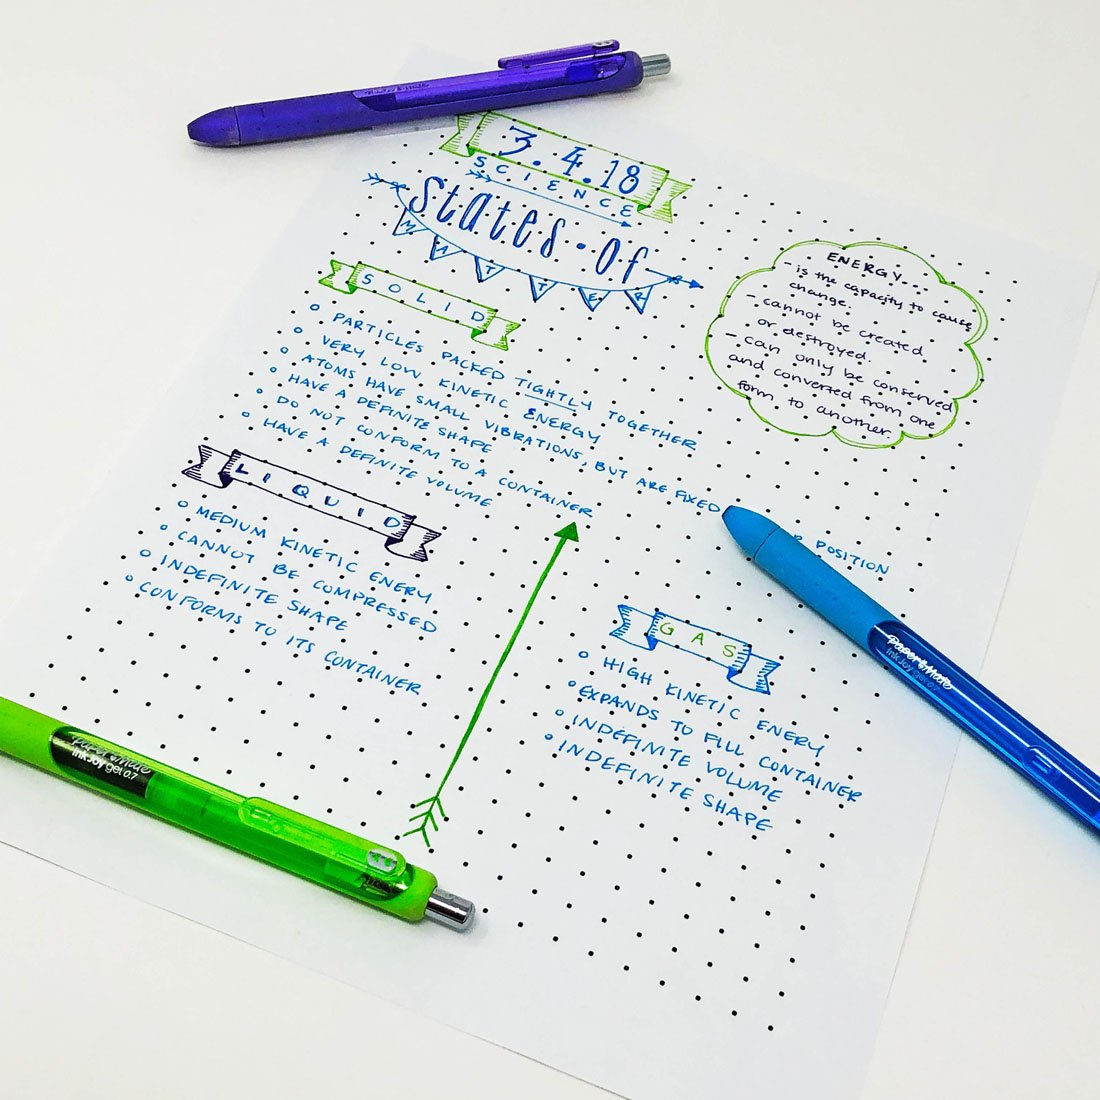 3.4.18
SCIENCE
States·Of
MATTER
SOLID
PARTICLES PACKED TIGHTLY TOGETHER
VERY LOW KINETIC ENERGY
ATOMS HAVE SMALL VIBRATIONS, BUT ARE FIXED POSITION
HAVE A DEFINITE SHAPE
DO NOT CONFORM TO A CONTAINER
HAVE A DEFINITE VOLUME
ENERGY...
- is the capacity to cause
change.
- cannot be created
or destroyed.
- can only be conserved
and converted from one
form to another.
LIQUID
MEDIUM KINETIC ENERY
CANNOT BE COMPRESSED
INDEFINITE SHAPE
CONFORMS TO ITS CONTAINER
GAS
HIGH KINETIC ENERY
EXPANDS TO FILL CONTAINER
INDEFINITE VOLUME
INDEFINITE SHAPE
Paper Mate
InkJoy gel 0.7
Paper Mate
InkJoy gel 0.7